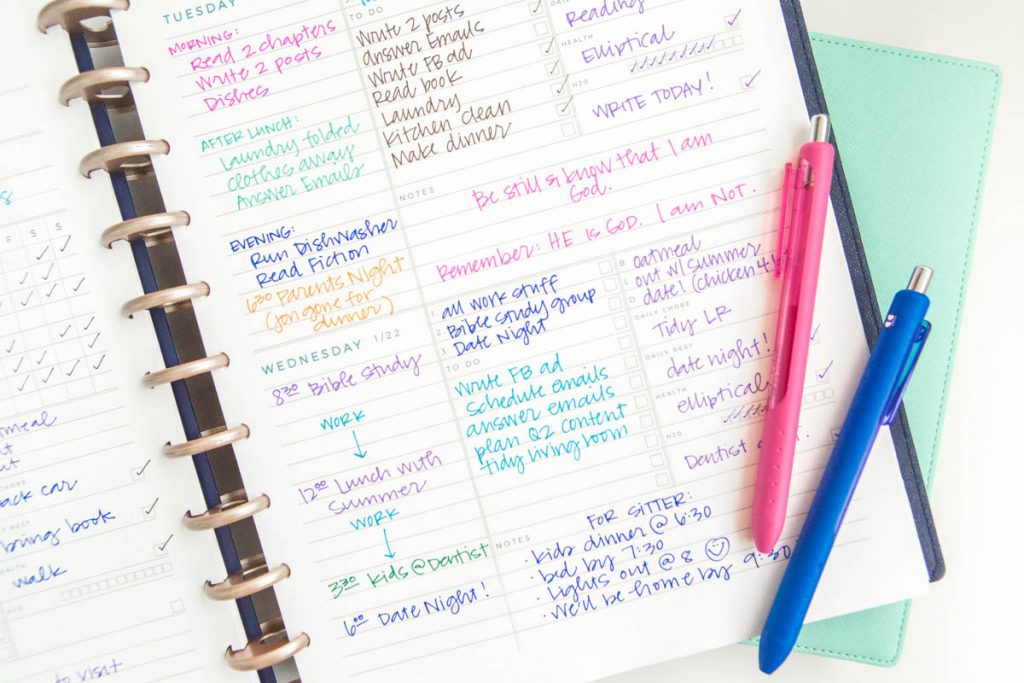 TUESDAY
MORNING:
Read 2 chapters
Write 2 posts
Dishes
AFTER LUNCH:
Laundry folded
clothes away
Answer Emails
EVENING:
Run Dishwasher
Read Fiction
6:30 Parents Night
(Jon gone for
dinner)
TO DO
Write 2 posts
Answer Emails
Write FB ad
Read book
Laundry
Kitchen clean
Make dinner
Reading
HEALTH
Elliptical
H2O
WRITE TODAY!
NOTES
Be still & know that I am
God.
Remember: HE is GOD. I am NOT.
WEDNESDAY 1/22
8:30 Bible Study
WORK
12:00 Lunch with
Summer
WORK
3:30 Kids @ Dentist
6:00 Date Night!
1 all work stuff
2 Bible study group
3 Date Night
TO DO
Write FB ad
Schedule emails
answer emails
plan Q2 content
tidy living room
B oatmeal
L out w/ Summer
D date! (chicken 4
DAILY CHORE
Tidy LR
DAILY REST
date night!
HEALTH
elliptical
H2O
Dentist
NOTES
FOR SITTER:
· kids dinner @ 6:30
· bed by 7:30
· Lights out @ 8
· We'll be home by 9:30
F S S
back car
REST
bring book
HEALTH
walk
to visit